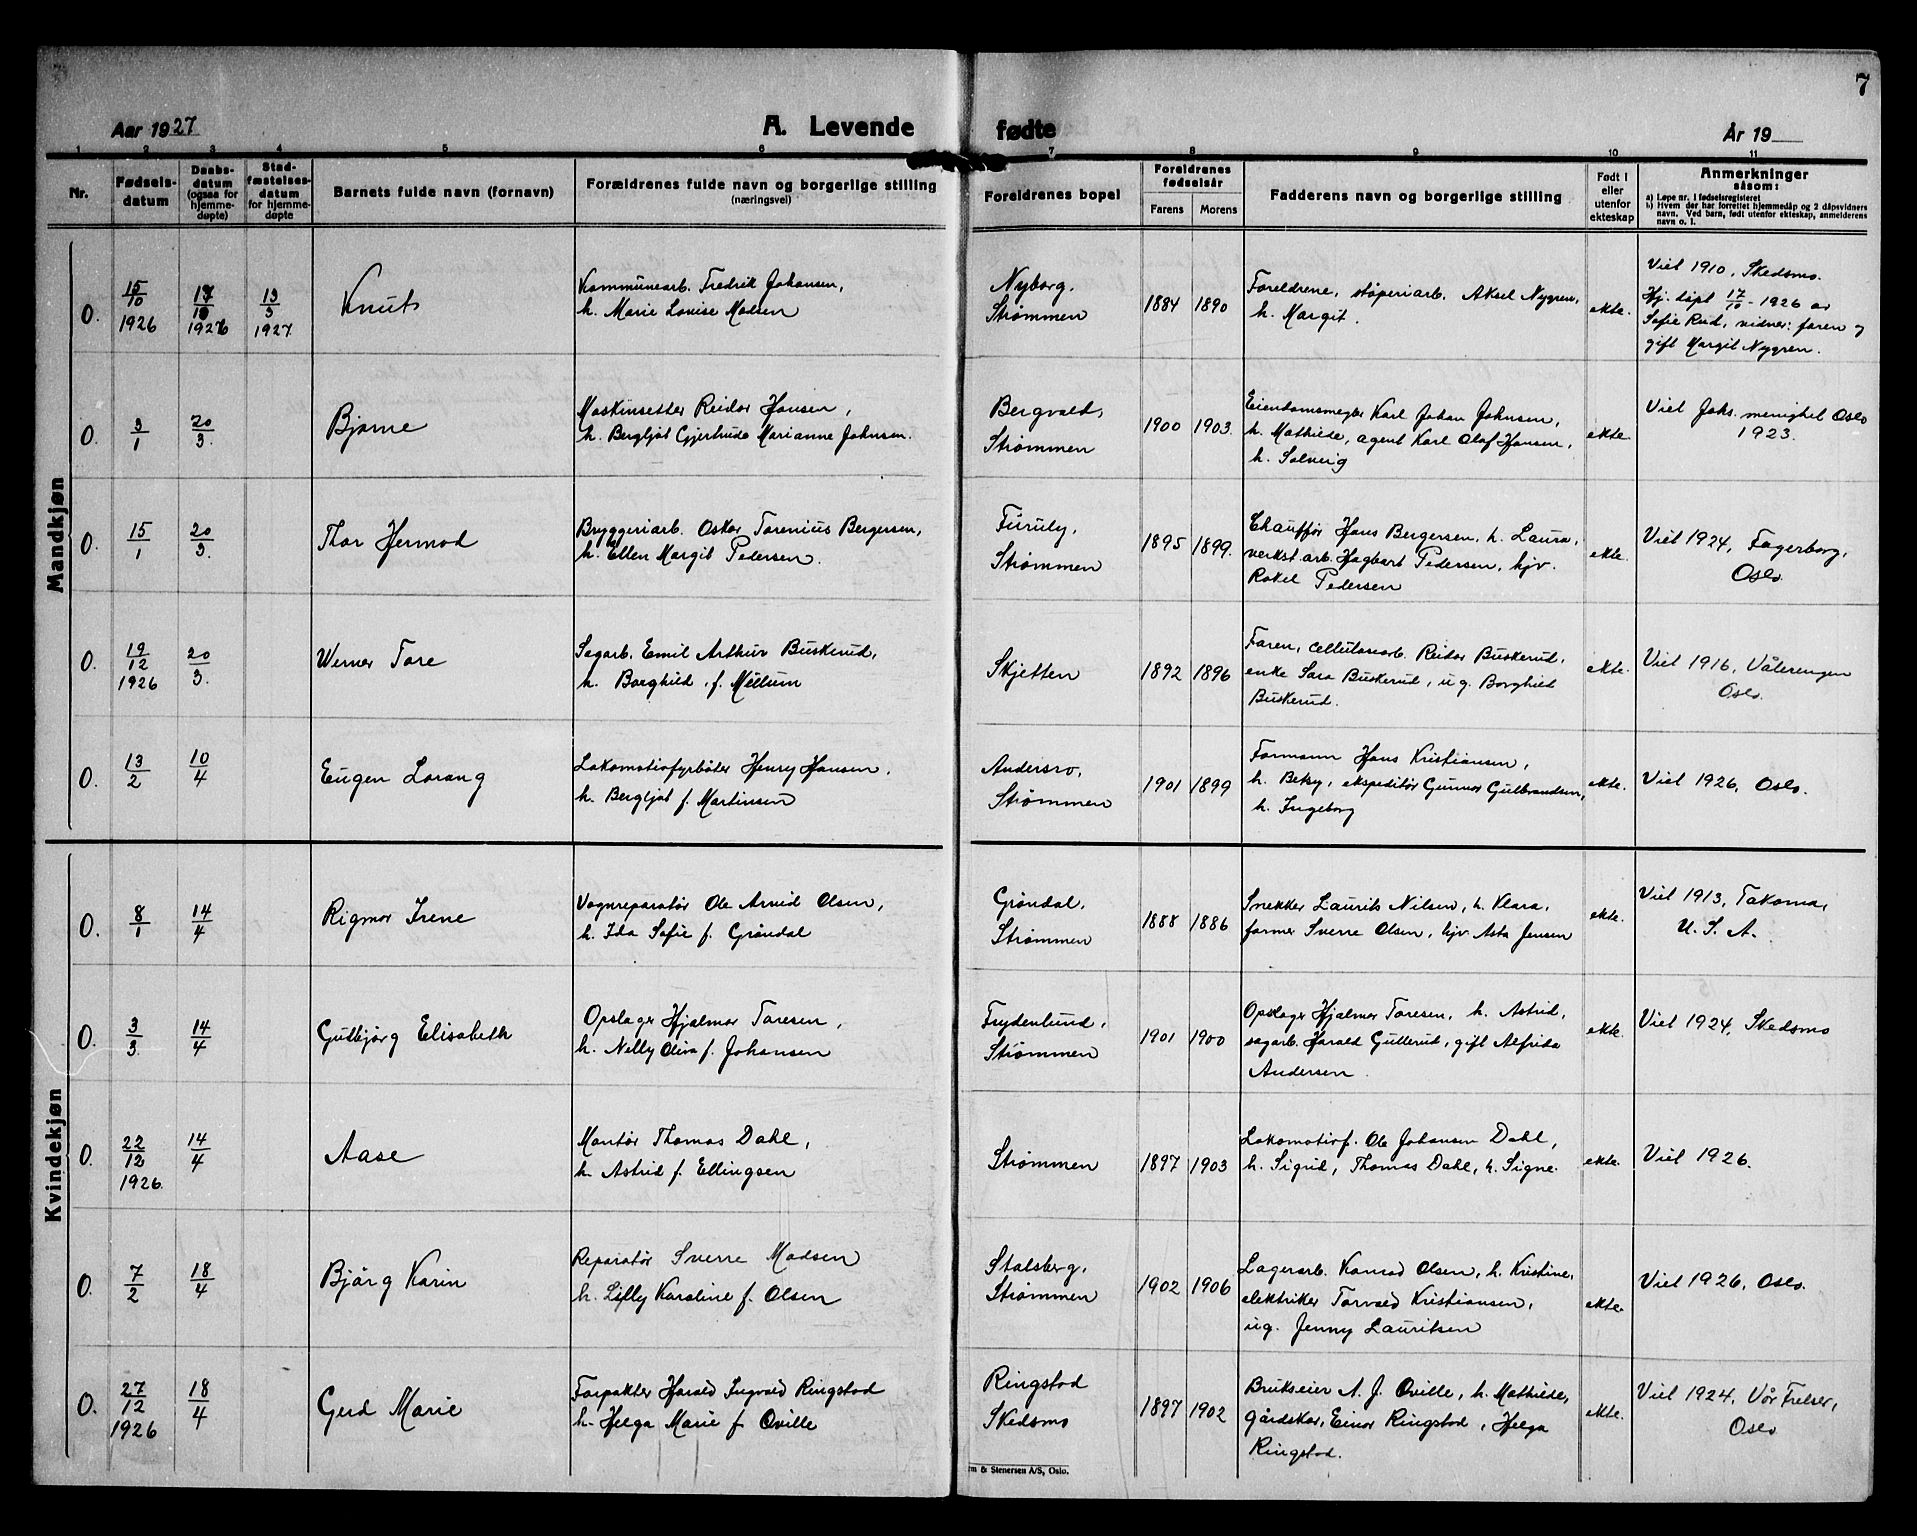 7
Aar 1927
A. Levende
fødte
År 19
1 2 3 4 5 6 7 8 9 10 11
Nr.
Fødsels-
datum
Daabs-
datum
(ogsaa for
hjemme-
døpte)
Stad-
fæstelses-
datum
for hjemme-
døpte
Barnets fulde navn (fornavn)
Forældrenes fulde navn og borgerlige stilling
(næringsvei)
Foreldrenes bopel
Foreldrenes
fødselsår
Farens Morens
Fadderens navn og borgerlige stilling
Født i
eller
utenfor
ekteskap
Anmerkninger
såsom:
a) Løpe nr. i fødselsregisteret
b) Hvem der har forrettet hjemmedåp og 2 dåpsvidners
navn. Ved barn, født utenfor ekteskap, anmelderens
navn o. l.
Mandkjøn
0.
15/10
1926
17/10
1926
13/3
1927
Knut
Kommunearb. Fredrik Johansen,
h. Marie Lovise Madsen
Nyborg,
Strømmen
1884 1890
Foreldrene, støperiarb. Aksel Nygren,
h. Margit.
ekte.
Viet 1910, Skedsmo.
Hj. døpt 17/10 - 1926 av
Sofie Rud, vidner: faren og
gift Margit Nygren.
0.
3/1
20/3.
Bjarne
Maskinsetter Reidar Hansen,
h. Bergljot Gjertrude Marianne Johnsen.
Bergvald,
Strømmen
1900 1903.
Eiendomsmegler Karl Johan Johnsen,
h. Mathilde, agent Karl Olaf Hansen,
h. Solveig
ekte.
Viet Joh's. menighet Oslo
1923.
0.
15/1
20/3.
Thor Hermod
Bryggeriarb. Oskar Torenius Bergersen,
h. Ellen Margit Pedersen.
Furuly,
Strømmen
1895 1899.
Chauffør Hans Bergersen, h. Laura,
verkst.arb. Hagbart Pedersen, hjv.
Rakel Pedersen
ekte.
Viet 1924, Fagerborg,
Oslo.
0.
19/12
1926
20/3.
Werner Tore
Sagarb. Emil Arthur Buskerud,
h. Borghild f. Mellum
Skjetten
1892 1896
Faren, cellulosearb. Reidar Buskerud,
enke Sara Buskerud, ug. Borghild
Buskerud.
ekte.
Viet 1916, Vålerengen
Oslo.
0.
13/2
10/4
Eugen Lorang
Lokomotivfyrbøter Henry Hansen,
h. Bergljot f. Martinsen
Andersro,
Strømmen
1901 1899
Formann Hans Kristiansen,
h. Betsy, ekspeditør Gunnar Gulbrandsen,
h. Ingeborg
ekte.
Viet 1926, Oslo.
Kvindekjøn
0.
8/1
14/4
Rigmor Irene
Vognreparatør Ole Arvid Olsen,
h. Ida Sofie f. Grøndal
Grøndal,
Strømmen
1888 1886
Snekker Laurits Nilsen, h. Klara,
former Sverre Olsen, hjv. Asta Jensen
ekte.
Viet 1913, Takoma,
U. S. A.
0.
3/3
14/4
Gutbjörg Elisabeth
Opslager Hjalmar Toresen,
h. Nelly Oliva f. Johansen
Frydenlund,
Strømmen
1901 1900
Opslager Hjalmar Toresen, h. Astrid,
sagarb. Harald Gullerud, gift Alfrida
Andersen.
ekte.
Viet 1924, Skedsmo
0.
22/12
1926.
14/4
Aase
Montør Thomas Dahl,
h. Astrid f. Ellingsen
Strømmen
1897 1903
Lokomotivf. Ole Johansen Dahl,
h. Sigrid, Thomas Dahl, h. Signe.
ekte.
Viet 1926.
0.
7/2
18/4
Björg Karin
Reparatør Sverre Madsen
h. Lilly Karoline f. Olsen
Stalsberg,
Strømmen
1902 1906
Lagerarb. Konrad Olsen, h. Kristine,
elektriker Torvald Kristiansen,
ug. Jenny Lauritsen
ekte.
Viet 1926, Oslo.
0.
27/12
1926
18/4
Gerd Marie
Forpakter Harald Ingvald Ringstad
h. Helga Marie f. Oville
Ringstad
Skedsmo
1897 1902
Brukseier A. J. Oville, h. Mathilde,
gårdskar, Einar Ringstad, Helga
Ringstad.
ekte.
Viet 1924, Vår Frelser,
Oslo
& Stenersen A/S, Oslo.